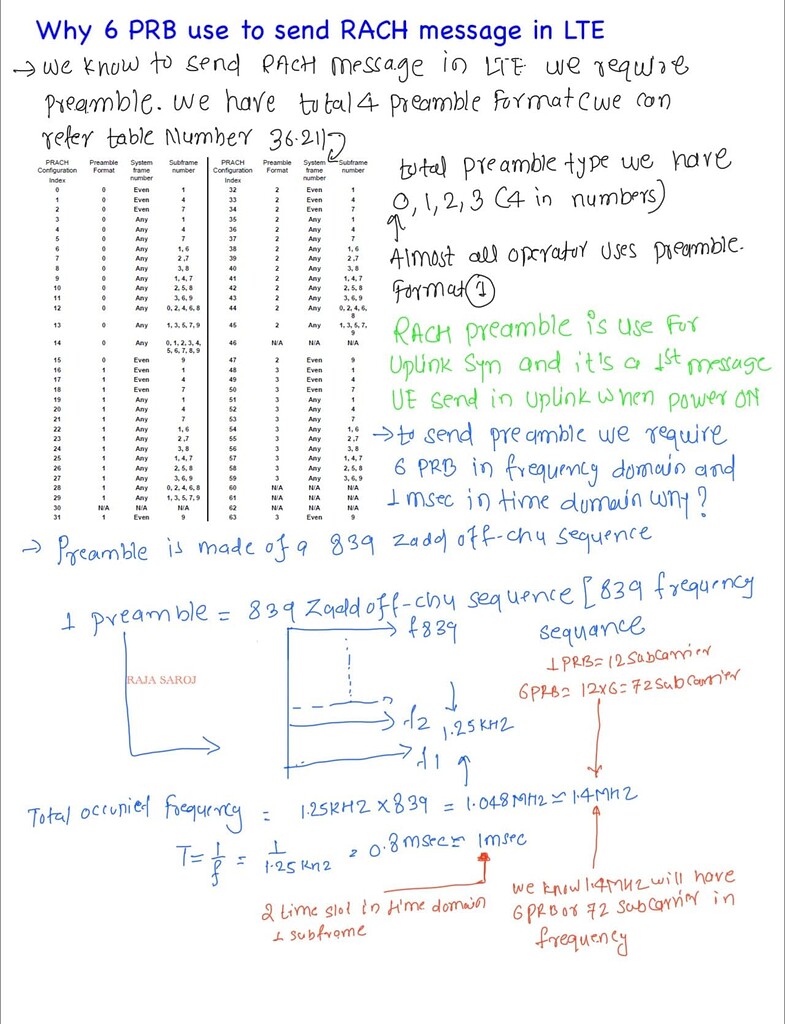 Why 6 PRB use to send RACH message in LTE
→ we know to send RACH message in LTE we require
Preamble. we have total 4 preamble format (we can
refer table Number 36.211)
PRACH Configuration Index Preamble Format System frame number Subframe number PRACH Configuration Index Preamble Format System frame number Subframe number
0 0 Even 1 32 2 Even 1
1 0 Even 4 33 2 Even 4
2 0 Even 7 34 2 Even 7
3 0 Any 1 35 2 Any 1
4 0 Any 4 36 2 Any 4
5 0 Any 7 37 2 Any 7
6 0 Any 1, 6 38 2 Any 1, 6
7 0 Any 2 ,7 39 2 Any 2 ,7
8 0 Any 3, 8 40 2 Any 3, 8
9 0 Any 1, 4, 7 41 2 Any 1, 4, 7
10 0 Any 2, 5, 8 42 2 Any 2, 5, 8
11 0 Any 3, 6, 9 43 2 Any 3, 6, 9
12 0 Any 0, 2, 4, 6, 8 44 2 Any 0, 2, 4, 6, 8
13 0 Any 1, 3, 5, 7, 9 45 2 Any 1, 3, 5, 7, 9
14 0 Any 0, 1, 2, 3, 4, 5, 6, 7, 8, 9 46 N/A N/A N/A
15 0 Even 9 47 2 Even 9
16 1 Even 1 48 3 Even 1
17 1 Even 4 49 3 Even 4
18 1 Even 7 50 3 Even 7
19 1 Any 1 51 3 Any 1
20 1 Any 4 52 3 Any 4
21 1 Any 7 53 3 Any 7
22 1 Any 1, 6 54 3 Any 1, 6
23 1 Any 2 ,7 55 3 Any 2 ,7
24 1 Any 3, 8 56 3 Any 3, 8
25 1 Any 1, 4, 7 57 3 Any 1, 4, 7
26 1 Any 2, 5, 8 58 3 Any 2, 5, 8
27 1 Any 3, 6, 9 59 3 Any 3, 6, 9
28 1 Any 0, 2, 4, 6, 8 60 N/A N/A N/A
29 1 Any 1, 3, 5, 7, 9 61 N/A N/A N/A
30 N/A N/A N/A 62 N/A N/A N/A
31 1 Even 9 63 3 Even 9
total preamble type we have
0, 1, 2, 3 (4 in numbers)
Almost all operator uses preamble.
format 1
RACH preamble is use for
Uplink Syn and it's a 1st message
UE send in uplink when power ON
→ to send preamble we require
6 PRB in frequency domain and
1 msec in time domain why?
→ Preamble is made of a 839 zadd off-chu sequence
1 preamble = 839 Zadd off-chu sequence [839 frequency
sequance
f839
1 PRB = 12 subcarrier
6 PRB = 12x6 = 72 sub carrier
RAJA SAROJ
f2 1.25 KHZ
f1
Total occupied frequency = 1.25KHZ x 839 = 1.048 MHZ ≃ 1.4MHZ
T = 1/f = 1/1.25 KHZ = 0.8 msec ≃ 1msec
2 time slot in time domain
1 subframe
we know 1.4MHZ will have
6 PRB or 72 subcarrier in
frequency